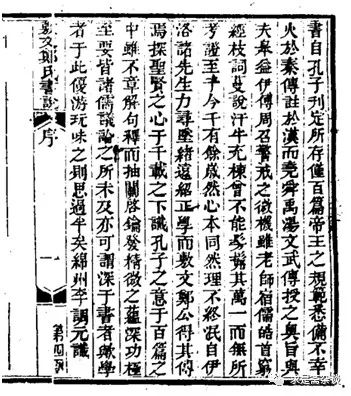 書自孔子刊定所存僅百篇帝王之規範悉備不幸
火於秦傳註於漢而堯舜禹湯文武傳授之奧旨與
夫皋益伊傅周召警戒之微機雖老師宿儒皓首窮
經枝詞蔓說汗牛充棟曾不能髣髴其萬一而無所
考證至于今千有餘歲然心本同然理不終泯自伊
洛諸先生力尋墜緒遠紹正學而敷文鄭公得其傳
焉探聖賢之心于千載之下識孔子之意于百篇之
中雖不章解句釋而抽關啓鑰發精微之蘊深功極
至要皆諸儒議論之所未及亦可謂深于書者歟學
者于此優游玩味之則思過半矣綿州李調元識
敷文鄭氏書說
序
一
第四函